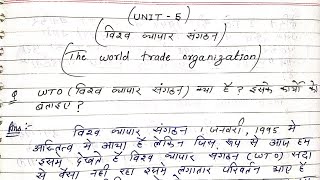 (UNIT - 5)
(विश्व व्यापार संगठन)
(The world trade organization)
Q WTO (विश्व व्यापार संगठन) क्या है ? इसके कार्यो को
बताइए ?
Ans:- विश्व व्यापार संगठन 1 जनवरी, 1995 में
अस्तित्व में आया है लेकिन जिस रूप से आज हम
इसमें देखते हैं विश्व व्यापार संगठन (WTO) सदा
से वैसा नहीं रहा इसमें लगातार परिवर्तन आए हैं